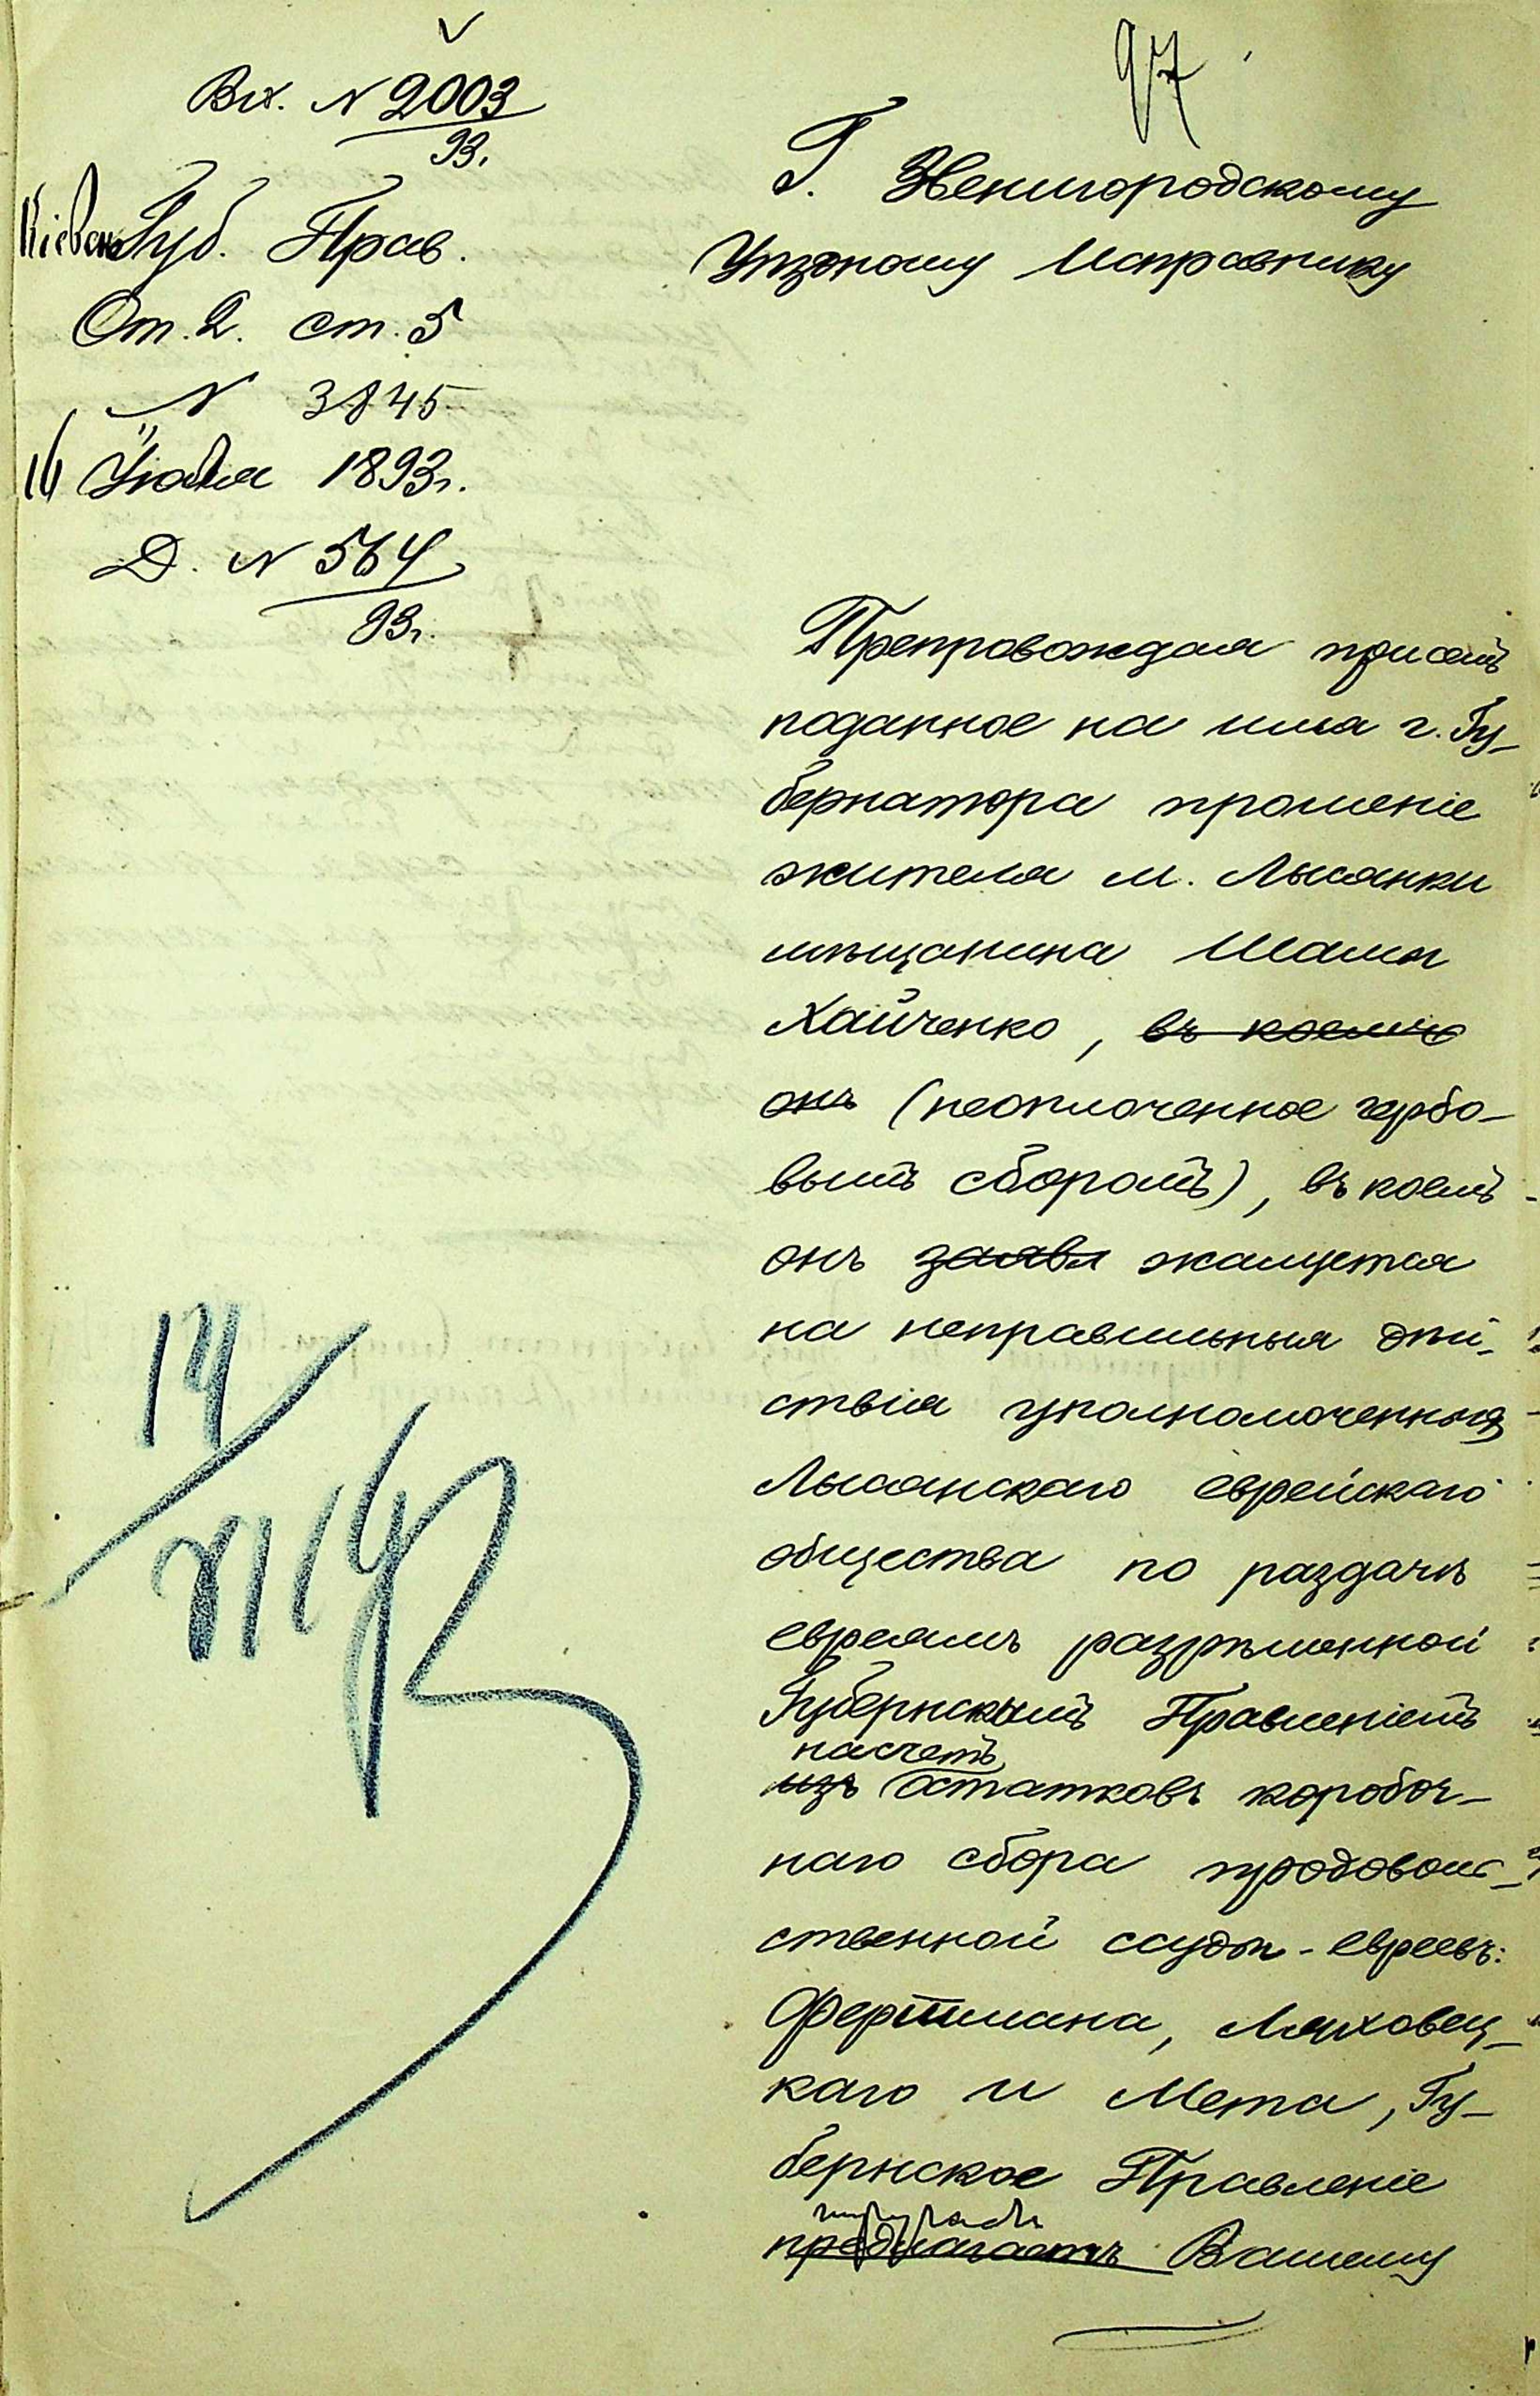 97
Вх. N 2003
93.
Кіевск. Губ. Прав.
От. 2. ст. 5
N 3845
16 Іюля 1893г.
Д. N 564
93г.
Г. Звенигородскому
Уѣздному Исправнику
Препровождая при семъ
поданное на имя г. Гу-
бернатора прошеніе
жителя м. Лысянки
мѣщанина Шамы
Хайченко, въ коемъ
онъ (неоплоченное гербо-
вымъ сборомъ), въ коемъ
онъ заявл жалуется
на неправильныя дѣй-
ствія уполномоченныхъ
Лысянскаго еврейскаго
общества по раздачѣ
евреямъ разрѣшенной
Губернскимъ Правленіемъ
насчетъ
изъ остатковъ коробоч-
наго сбора продоволь-
ственной ссуды - евреевъ:
Фертмана, Ляховец-
каго и Мета, Гу-
бернское Правленіе
предлагаетъ Вашему